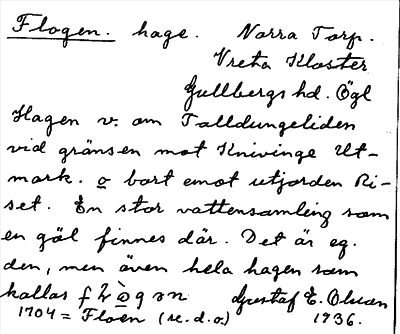 Flogen. hage. Norra Torp.
Vreta Kloster
Gullbergs hd. Ögl
Hagen v. om Talldungeliden
vid gränsen mot Knivinge Ut-
mark. o bort emot utjorden Ri-
set. En stor vattensamling som
en göl finnes där. Det är eg.
den, men även hela hagen som
kallas
Gustaf E. Olsson
1704 = Floen (se. d. o.) 1936.